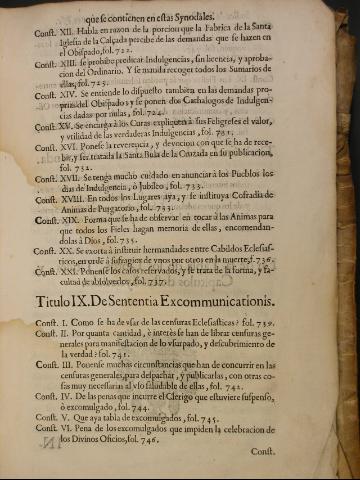 que se contienen en estas Synodales.
Const. XII. Habla en razon de la porcion que la Fabrica de la Santa
Iglesia de la Calçada percibe de las demandas que se hazen en
el Obispado, fol. 722.
Const. XIII. se prohibe predicar Indulgencias, sin licencia, y aproba-
cion del Ordinario. Y se manda recoger todos los Sumarios de
ellas, fol. 723.
Const. XIV. Se entiende lo dispuesto tambien en las demandas pro-
prias del Obispado: y se ponen dos Cathalogos de Indulgen-
cias dadas por nulas, fol. 724.
Const. XV. Se encarga à los Curas expliquen à sus Feligreses el valor,
y utilidad de las verdaderas Indulgencias, fol. 731.
Const. XVI. Ponese la reverencia, y devocion con que se ha de rece-
bir, y ser tratada la Santa Bula de la Cruzada en su publicacion,
fol. 732.
Const. XVII. Se tenga mucho cuidado en anunciar à los Pueblos los
dias de Indulgencia, ò Jubileo, fol. 733.
Const. XVIII. En todos los Lugares aya, y se instituya Cofradia de
Animas de Purgatorio, fol. 733.
Const. XIX. Forma que se ha de observar en tocar à las Animas para
que todos los Fieles hagan memoria de ellas, encomendan-
dolas à Dios, fol. 735.
Const. XX. Se exorta à instituir hermandades entre Cabildos Eclesias-
ticos, en ordẽ à sufragios de vnos por otros en la muerte, f. 736.
Const. XXI. Ponense los casos reservados, y se trata de la forma, y fa-
cultad de absolverlos, fol. 737.
Titulo IX. De Sententia Excommunicationis.
Const. I. Como se ha de vsar de las censuras Eclesiasticas? fol. 739.
Const. II. Por quanta cantidad, è interès se han de librar censuras ge-
nerales para manifestacion de lo vsurpado, y descubrimiento de
la verdad? fol. 741.
Const. III. Ponense muchas circunstancias que han de concurrir en las
censuras generales, para despachar, y publicarlas, con otras co-
sas muy necesarias al vso saludable de ellas, fol. 742.
Const. IV. De las penas que incurre el Clerigo que estuviere suspenso,
ò excomulgado, fol. 744.
Const. V. Que aya tabla de excomulgados, fol. 745.
Const. VI. Pena de los excomulgados que impiden la celebracion de
los Divinos Oficios, fol. 746.
Const.